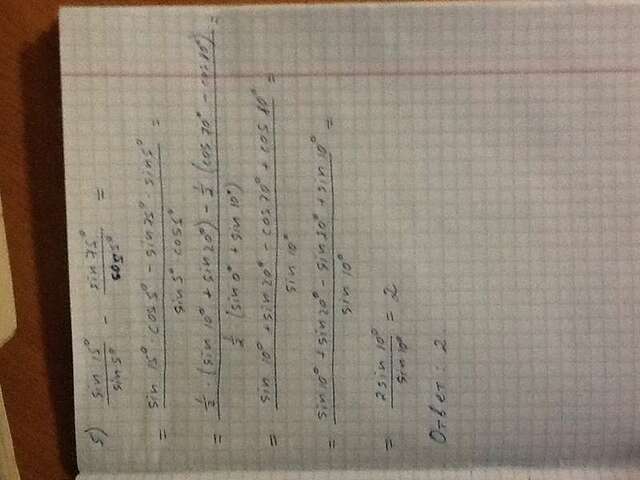 5) sin 15° / sin 5° − sin 75° / cos 5° =
= sin 15° · cos 5° − sin 75° · sin 5° / sin 5° · cos 5° =
= 1/2 · (sin 10° + sin 20°) − 1/2 (cos 70° − cos 80°) / 1/2 (sin 0° + sin 10°) =
= sin 10° + sin 20° − cos 70° + cos 80° / sin 10° =
= sin 10° + sin 20° − sin 20° + sin 10° / sin 10° =
= 2 sin 10° / sin 10° = 2
Ответ: 2.